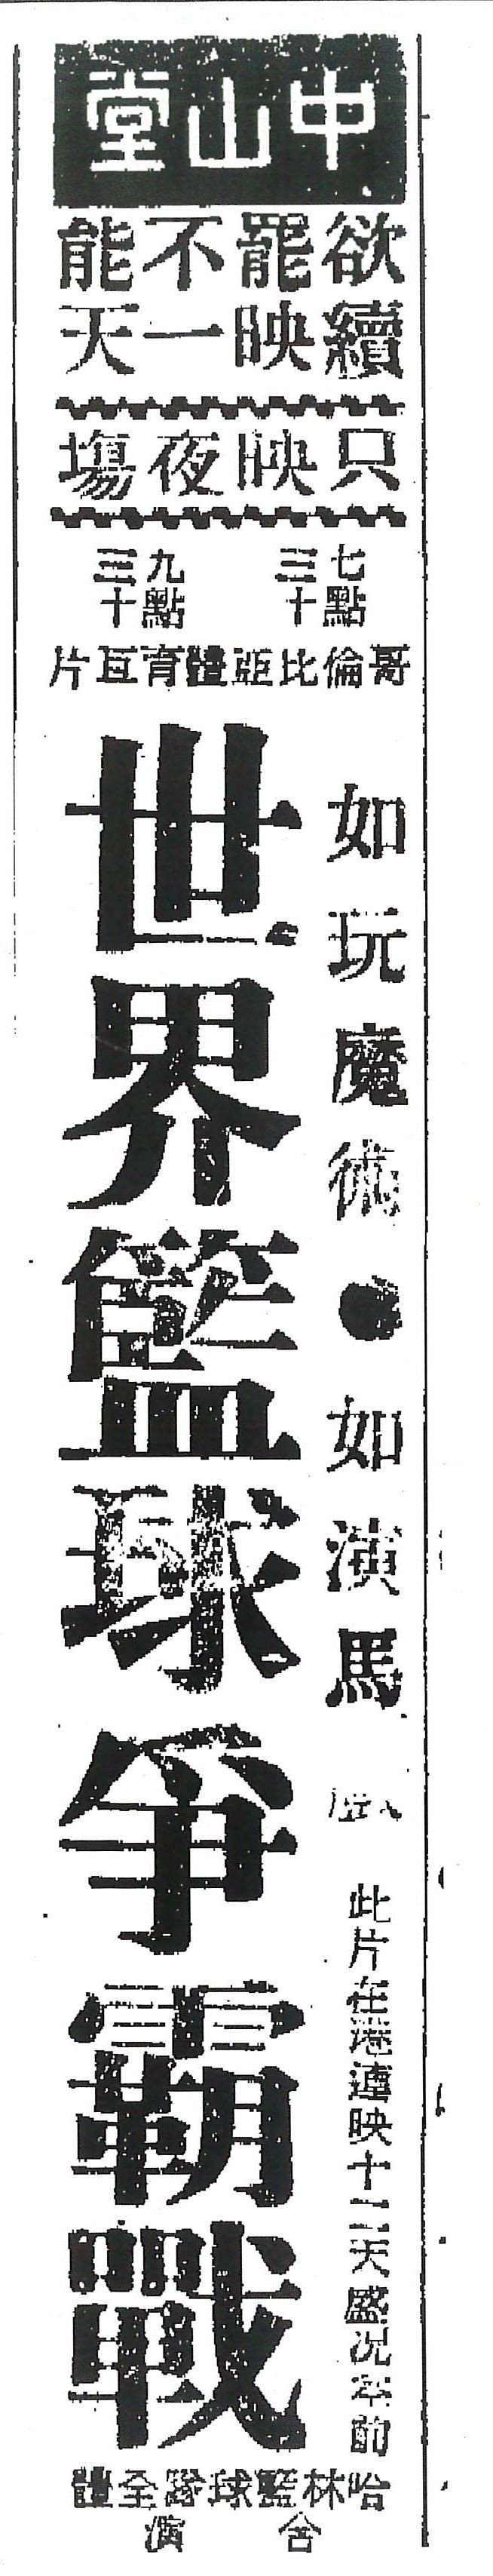 中山堂
欲罷不能
續映一天
只映夜場
七點三十
九點三十
哥倫比亞體育巨片
如玩魔術●如演馬
世界籃球爭霸戰
此片在港連映十二天盛况空前
哈林籃球隊全體
合演